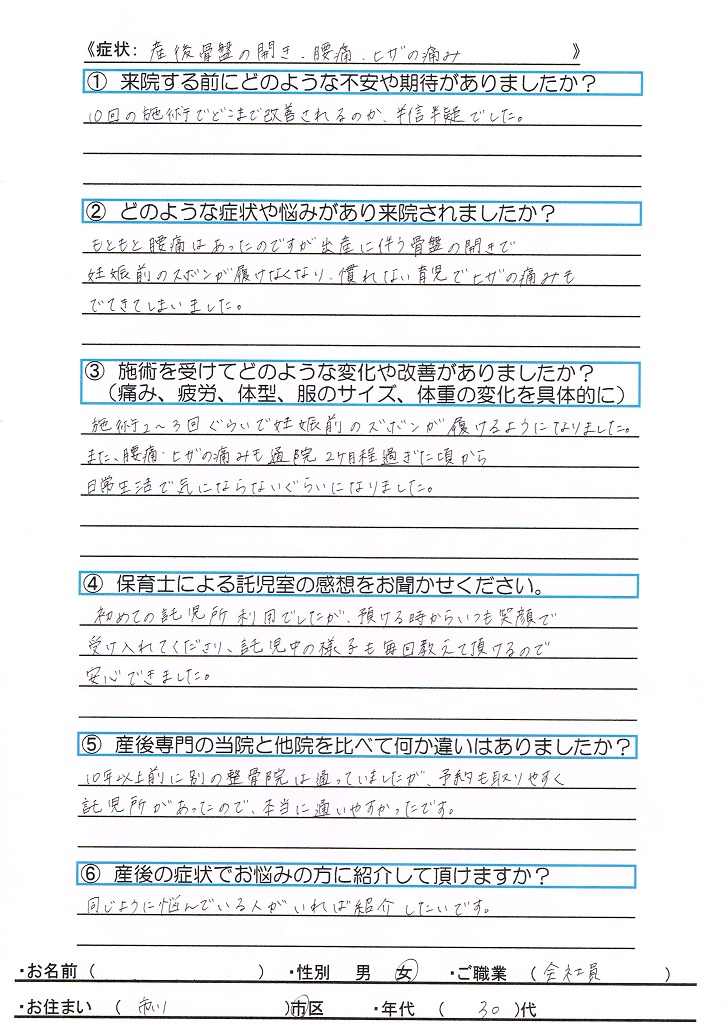 《症状: 産後骨盤の開き・腰痛・ヒザの痛み 》
① 来院する前にどのような不安や期待がありましたか？
10回の施術でどこまで改善されるのか、半信半疑でした。
② どのような症状や悩みがあり来院されましたか？
もともと腰痛はあったのですが出産に伴う骨盤の開きで
妊娠前のズボンが履けなくなり、慣れない育児でヒザの痛みも
でてきてしまいました。
③ 施術を受けてどのような変化や改善がありましたか？
（痛み、疲労、体型、服のサイズ、体重の変化を具体的に）
施術2〜3回ぐらいで妊娠前のズボンが履けるようになりました。
また、腰痛・ヒザの痛みも通院2ケ月程過ぎた頃から
日常生活で気にならないぐらいになりました。
④ 保育士による託児室の感想をお聞かせください。
初めての託児所利用でしたが、預ける時からいつも笑顔で
受け入れてくださり、託児中の様子も毎回教えて頂けるので
安心できました。
⑤ 産後専門の当院と他院を比べて何か違いはありましたか？
10年以上前に別の整骨院は通っていましたが、予約も取りやすく
託児所があったので、本当に通いやすかったです。
⑥ 産後の症状でお悩みの方に紹介して頂けますか？
同じように悩んでいる人がいれば紹介したいです。
・お名前（ ） ・性別 男 女 ・ご職業 （ 会社員 ）
・お住まい （ ）市区 ・年代 （ 30 ）代